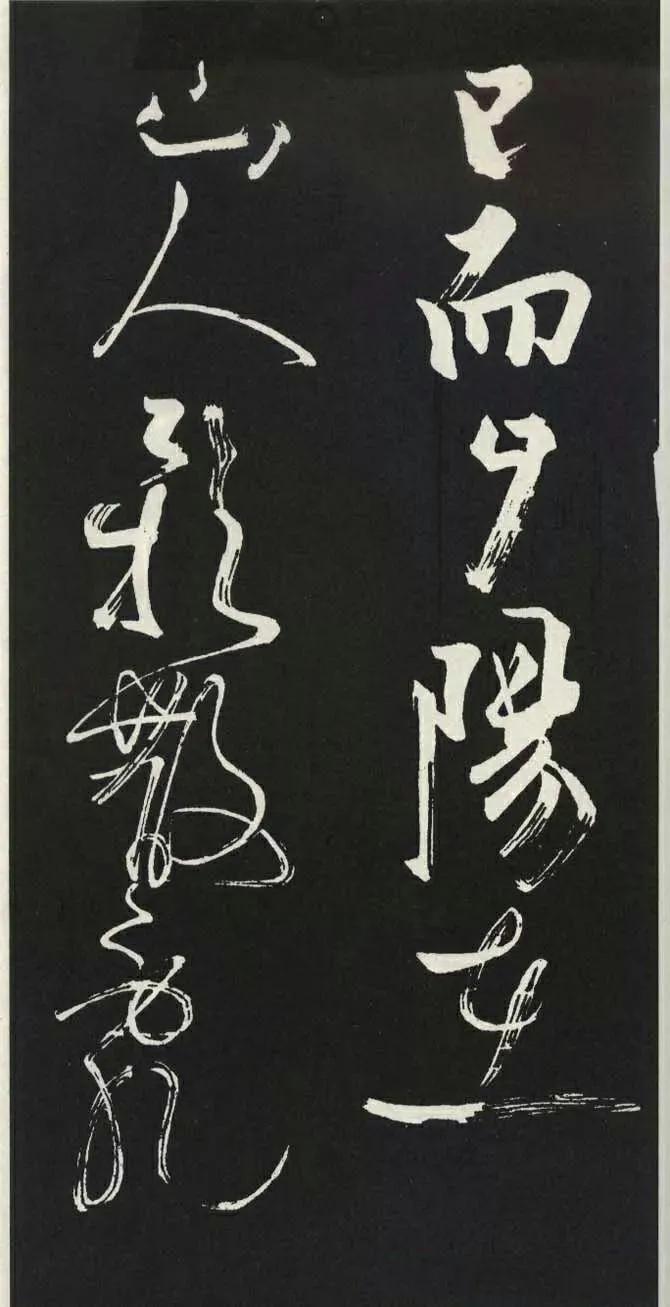 已而夕陽在
山人影散亂